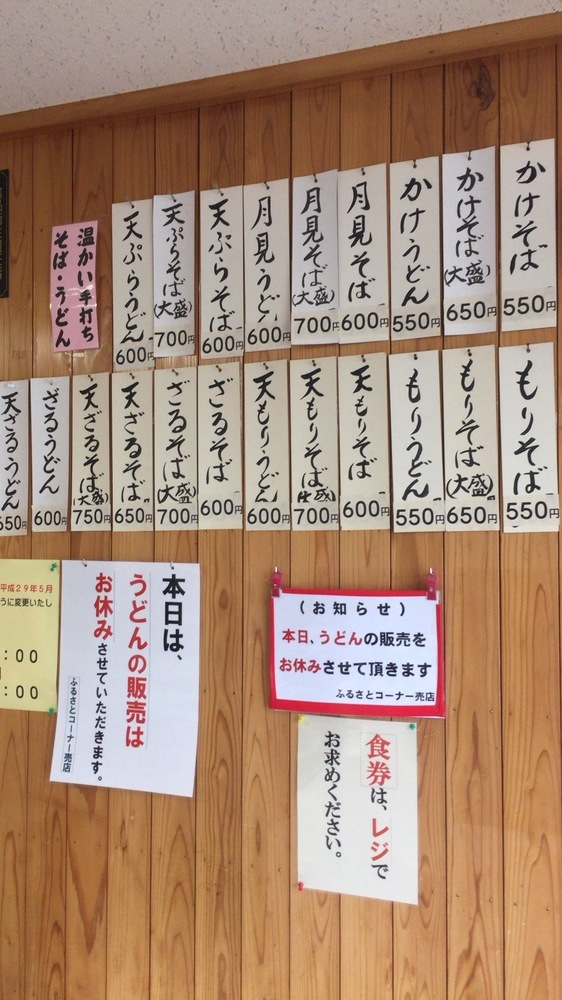 かけそば
550円
かけそば
(大盛)
650円
かけうどん
550円
月見そば
600円
月見そば
(大盛)
700円
月見うどん
600円
天ぷらそば
600円
天ぷらそば
(大盛)
700円
天ぷらうどん
600円
温かい手打ち
そば・うどん
もりそば
550円
もりそば
(大盛)
650円
もりうどん
550円
天もりそば
600円
天もりそば
(大盛)
700円
天もりうどん
600円
ざるそば
600円
ざるそば
(大盛)
700円
天ざるそば
650円
天ざるそば
(大盛)
750円
ざるうどん
600円
天ざるうどん
650円
平成29年5月
うに変更いたし
:00
:00
本日は、
うどんの販売は
お休みさせていただきます。
ふるさとコーナー売店
(お知らせ)
本日、うどんの販売を
お休みさせて頂きます
ふるさとコーナー売店
食券は、レジで
お求めください。